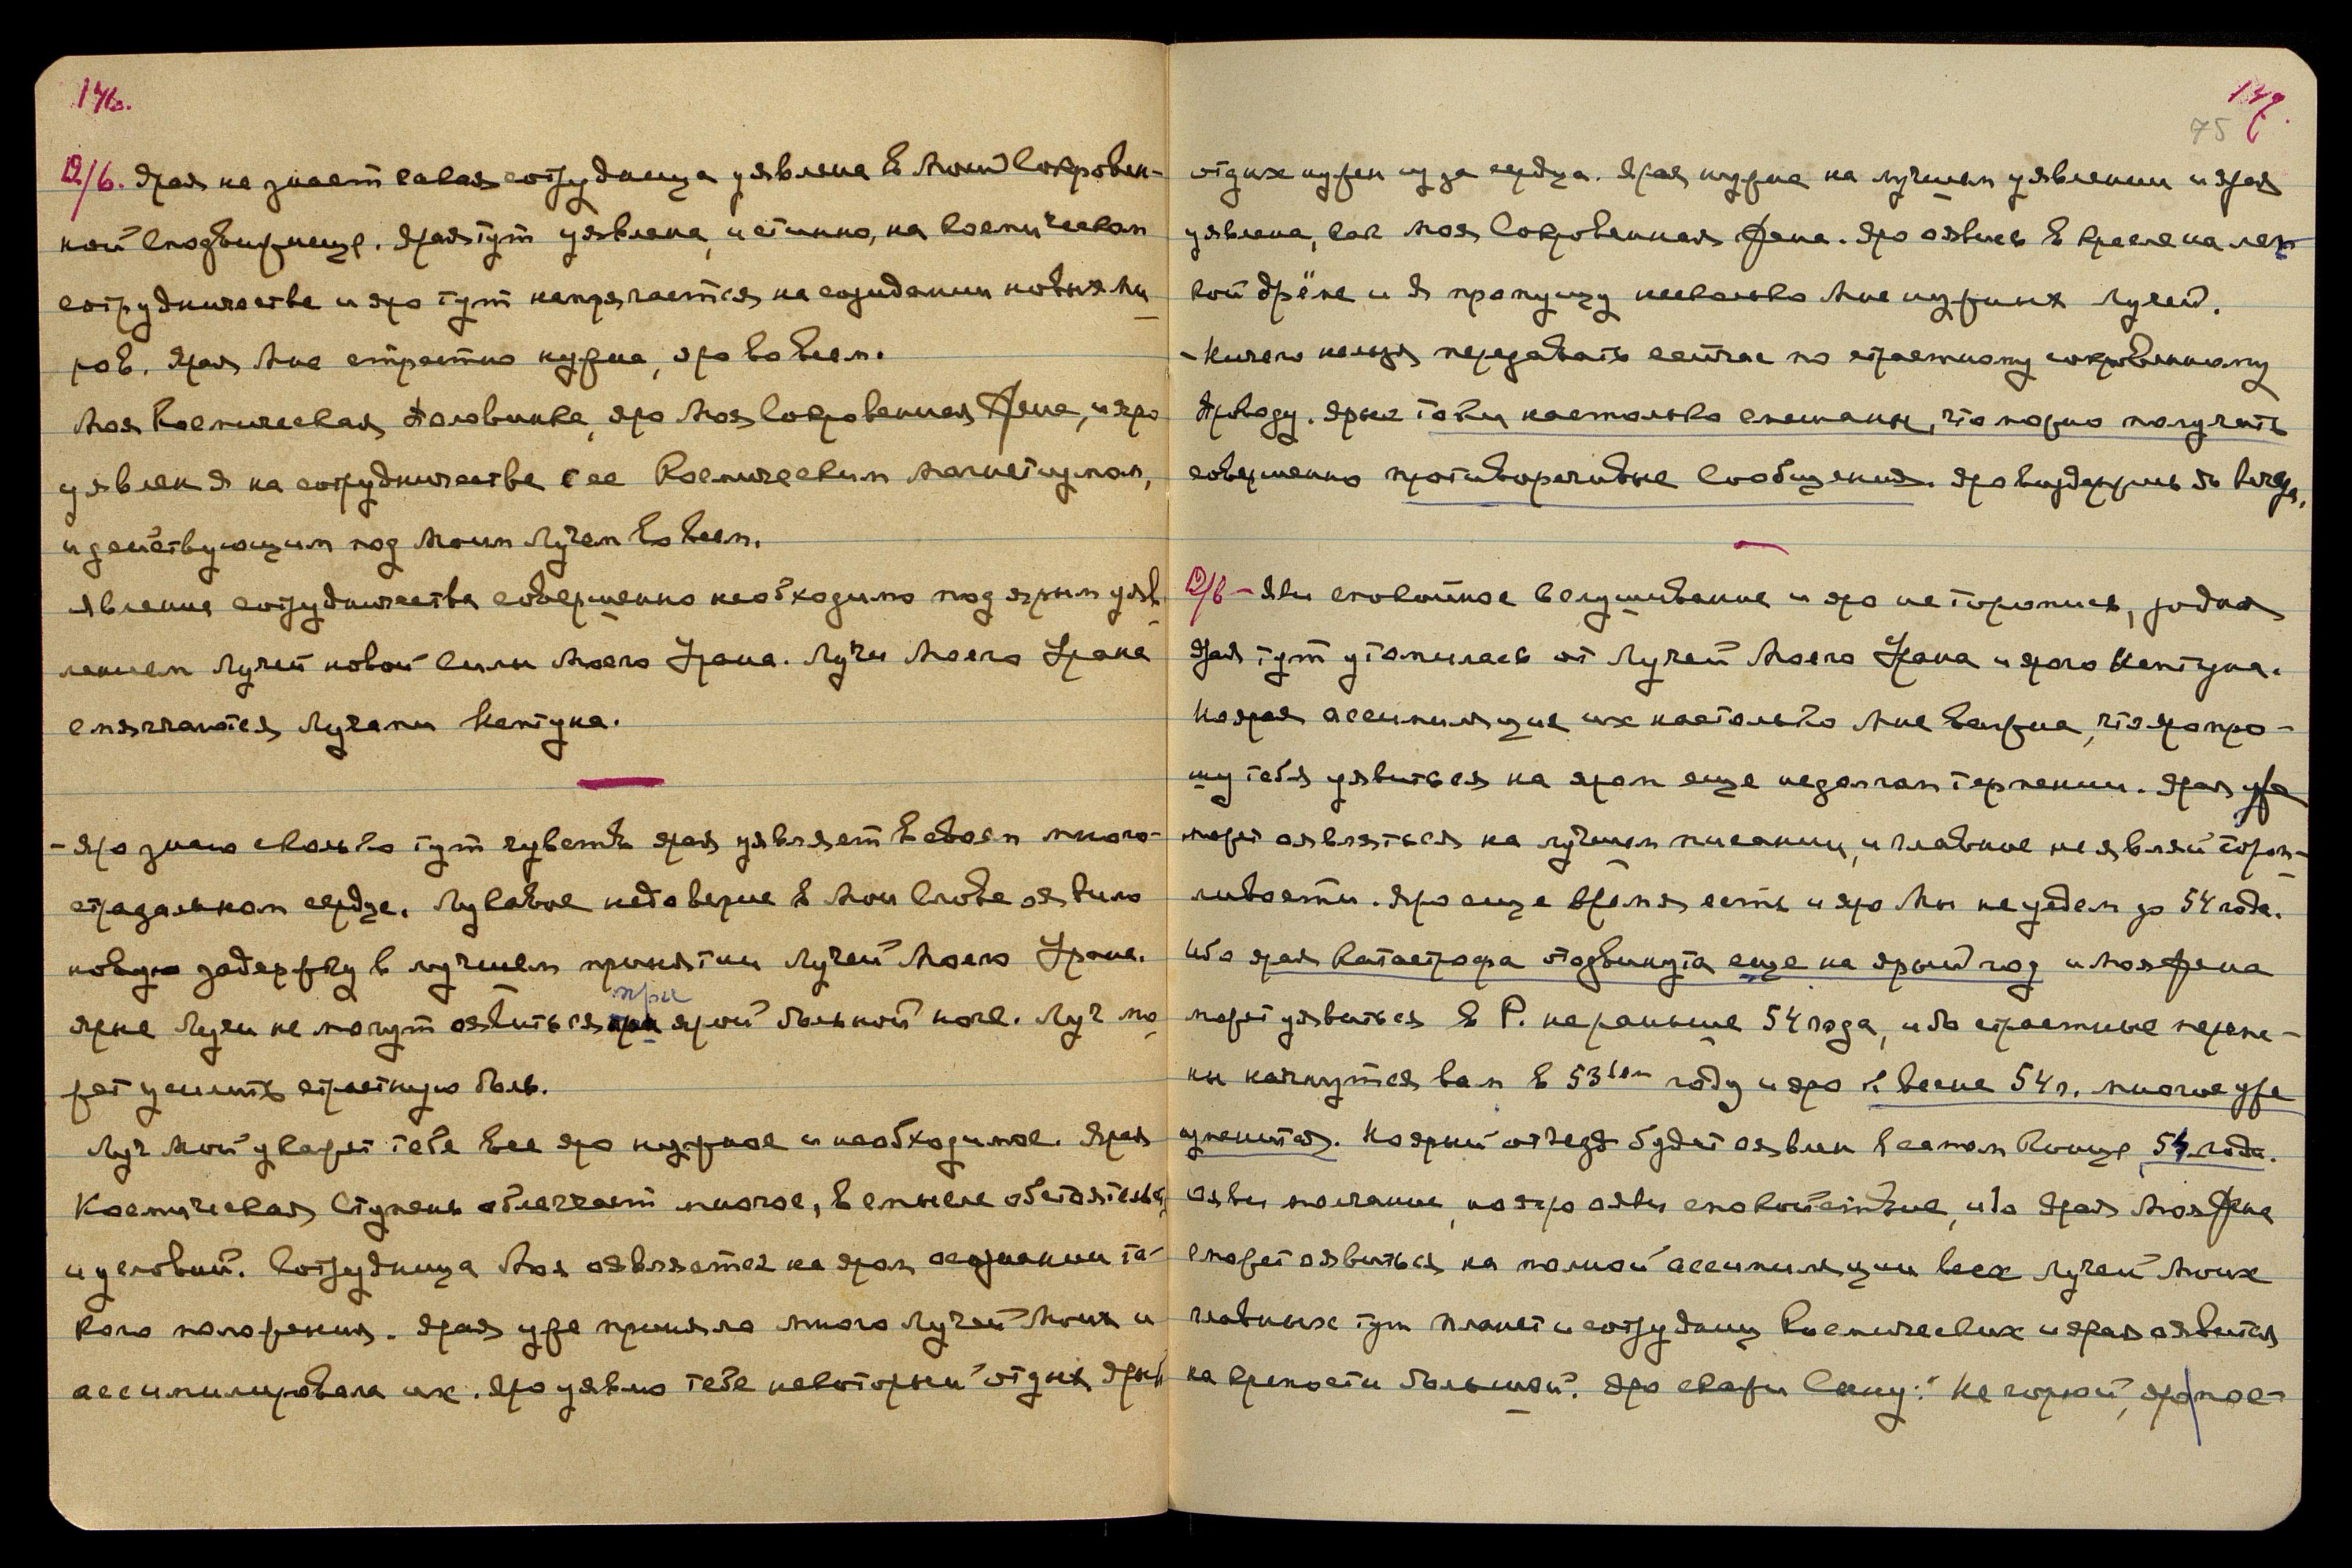 146.
12/6. Ярая не знает какая сотрудница уявлена в Моей Сокровен-
ной Сподвижнице. Ярая тут уявлена, истинно, на Космическом
сотрудничестве и яро тут напрягается на созидании новых Ми
ров. Ярая Мне страстно нужна, яро во всем.
Моя Космическая Половинка, яро Моя Сокровенная Жена, и яро
уявлен Я на сотрудничестве с ее Космическим Магнетизмом,
и действующим под Моим Лучем во всем.
Явление сотрудничества совершенно необходимо под ярым уяв-
лением Лучей новой Силы Моего Урана. Лучи Моего Урана
смягчаются Лучами Нептуна.
- Яро знаю сколько тут чувств ярая уявляет в своем много-
страдальном сердце. Лукавое недоверие в Мои Слова оявило
новую задержку в лучшем принятии Лучей Моего Урана.
при
Ярые Лучи не могут оявиться при ярой больной ноге. Луч мо-
жет усилить страстную боль.
Луч Мой укажет тебе все яро нужное и необходимое. Ярая
Космическая Ступень облегчает многое, в смысле обстоятельств
и условий. Сотрудница Моя оявляется на яром осознании та-
кого положения. Ярая уже приняла много Лучей Моих и
ассимилировала их. Яро уявлю тебе некоторый отдых. Ярый
147.
75
отдых нужен из за сердца. Ярая нужна на лучшем уявлении и ярая
уявлена, как Моя Сокровенная Жена. Яро оявись в кресле на лег-
кой дрёме и Я пропущу несколько Мне нужных Лучей.
- Ничего нельзя передавать сейчас по страстному сокровенному
Проводу. Ярые токи настолько смешаны, что можно получить
совершенно противоречивые сообщения. Яро выдержишь до вечера.
12/6 - Яви спокойное вслушивание и яро не торопись, родная
Ярая тут утомилась от Лучей Моего Урана и ярого Нептуна.
Но ярая ассимиляция их настолько Мне важна, что яро про-
шу тебя уявиться на яром еще недолгом терпении. Ярая уже
может оявляться на лучшем писании, и главное не являй тороп-
ливости. Яро еще время есть и яро Мы не уедем до 54 года.
Ибо ярая Катастрофа отодвинута еще на ярый год и Моя Жена
может уявиться в Р. не раньше 54 года, ибо страстные переме-
ны начнутся вам в 53-ем году и яро к весне 54 г. многое уже
изменится. Но ярый отъезд будет оявлен в самом Конце 54 года.
Яви молчание, но яро яви спокойствие, ибо Ярая Моя Жена
сможет оявиться на полной ассимиляции всех Лучей Моих
главных тут Планет и сотрудниц Космических и ярая оявится
на крепости большей. Яро скажи Сыну: "Не горюй, яро пос-